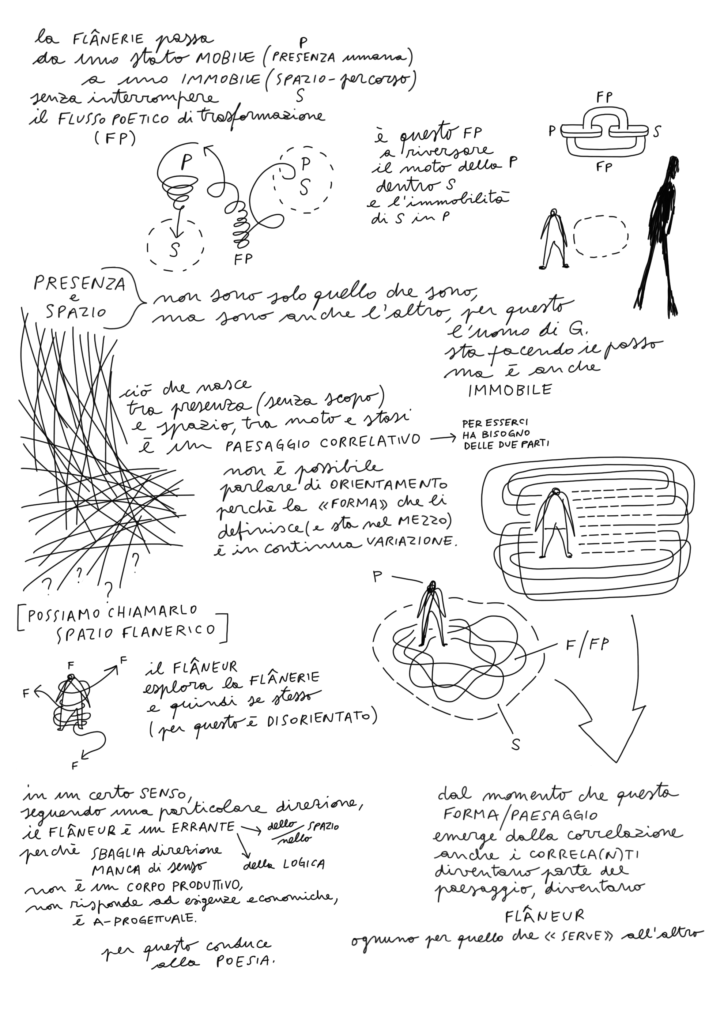 la FLÂNERIE passa
P
da uno stato MOBILE (PRESENZA umana)
a uno IMMOBILE (SPAZIO-percorso)
S
senza interrompere
il FLUSSO POETICO di trasformazione
(FP)
P
S
FP
P
S
è questo FP
a riversare
il moto della P
dentro S
e l'immobilità
di S in P
FP
P
S
FP
PRESENZA
e
SPAZIO
non sono solo quello che sono,
ma sono anche l'altro, per questo
l'uomo di G.
sta facendo il passo
ma è anche
IMMOBILE
ciò che nasce
tra presenza (senza scopo)
e spazio, tra moto e stasi
è un PAESAGGIO CORRELATIVO
PER ESSERCI
HA BISOGNO
DELLE DUE PARTI
non è possibile
parlare di ORIENTAMENTO
perchè la «FORMA» che li
definisce (e sta nel MEZZO)
è in continua VARIAZIONE.
? ? ? ?
[POSSIAMO CHIAMARLO
SPAZIO FLANERICO]
F
F
F
F
il FLÂNEUR
esplora la FLÂNERIE
e quindi se stesso
(per questo è DISORIENTATO)
P
F/FP
S
in un certo SENSO,
seguendo una particolare direzione,
il FLÂNEUR è un ERRANTE
dello/nello SPAZIO
della LOGICA
perchè SBAGLIA direzione
MANCA di senso
non è un CORPO PRODUTTIVO,
non risponde ad esigenze economiche,
è A-PROGETTUALE.
per questo conduce
alla POESIA.
dal momento che questa
FORMA/PAESAGGIO
emerge dalla correlazione
anche i CORRELA(N)TI
diventano parte del
paesaggio, diventano
FLÂNEUR
ognuno per quello che «SERVE» all'altro